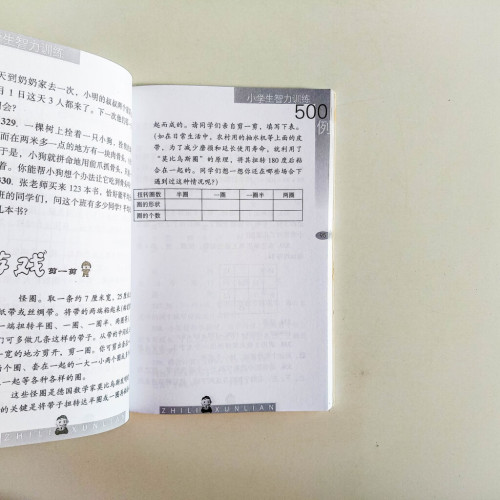 生智力训练
天到奶奶家去一次，小明的叔叔两个星
月1日这天3人都来了。下一次他们
会？
329. 一棵树上拴着一只小狗，拴狗
而在两米多一点的地方有一块肉骨头，
于是，小狗就拼命地用前爪抓骨头，
着。你能帮小狗想个办法让它吃到骨
330. 张老师买来123本书，恰好
班的同学们，问这个班有多少同学？平均
几本书？
游戏 剪一剪
怪圈。取一条约7厘米宽，25厘
纸带或丝绸带。将带的两端粘起
一端扭转半圈、一圈、一圈半、两圈
们可多做几条这样的带子。从带的中间
一宽的地方剪开，剪一圈。你可剪出
个圈、套在一起的一大一小两个圈
一起等各种各样的圈。
这些怪圈是德国数学家莫比乌斯发
的关键是将带子扭转达半圈或一圈再
ZHILI XUNLIAN
小学生智力训练
500
例
起而成的。请同学们亲自剪一剪，填写下表。
(如在日常生活中，农村用的抽水机等上面的皮
带，为了减少磨损和延长使用寿命，就利用了
“莫比乌斯圈”的原理，将其扭转180度后粘
合在一起的。同学们想一想你还在哪些场合下
遇到过这种情况呢？)
扭转圈数 半圈 一圈 一圈半 两圈
圈的形状
圈的个数
ZHILI XUNLIAN